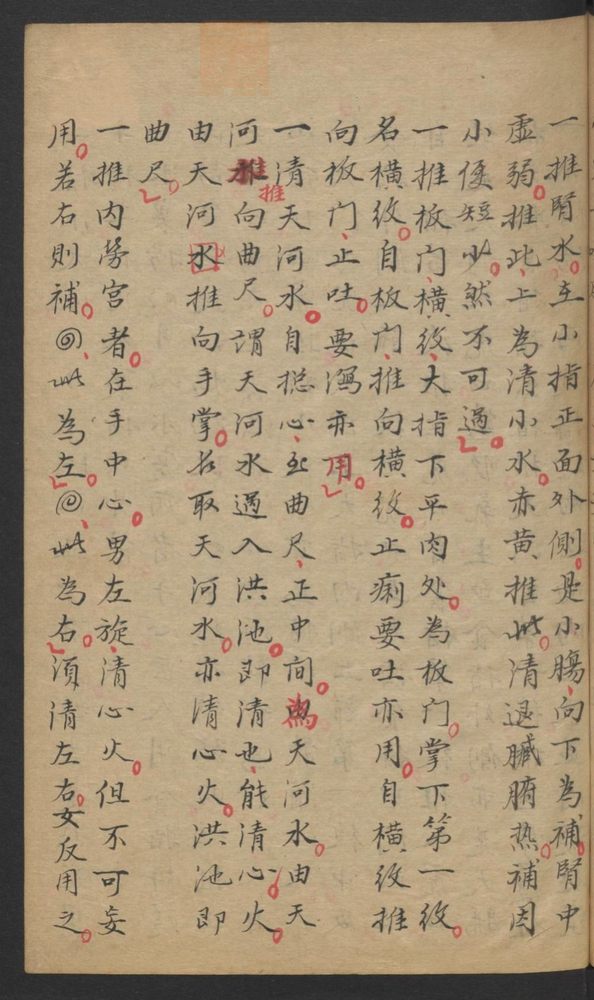 一推腎水。在小指正面外側。是小腸、向下為補。腎中
虛弱。推此、上為清小水。赤黃推此。清退臟腑熱。補因
小便短少。然不可過。
一推板门、橫紋、大指下平肉处。為板门。掌下第一紋。
名橫紋。自板门、推向橫紋。止痢要吐亦用。自橫紋推
向板门、止吐。要瀉亦用。
一清天河水。自捴心、至曲尺、正中间。為天河水。由天
河推推向曲尺。謂天河水過入洪池。即清也、能清心火。
由天河水推向手掌。名取天河水。亦清心火。洪池即
曲尺。
一推内勞宮者。在手中心。男左旋、清心火。但不可妄
用。若右則補。此為左。此為右。須清左右。女反用之。